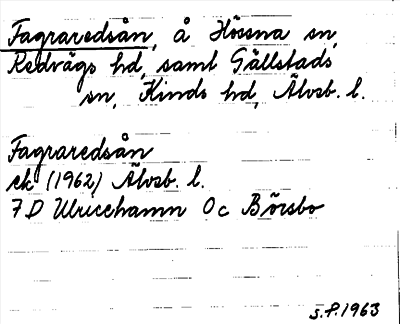 Fagraredsån, å Hössna sn,
Redvägs hd, samt Gällstads
sn, Kinds hd, Älvsb. l.
Fagraredsån
ek (1962) Älvsb. l.
7D Ulricehamn 0c Börsbo
S.P. 1963